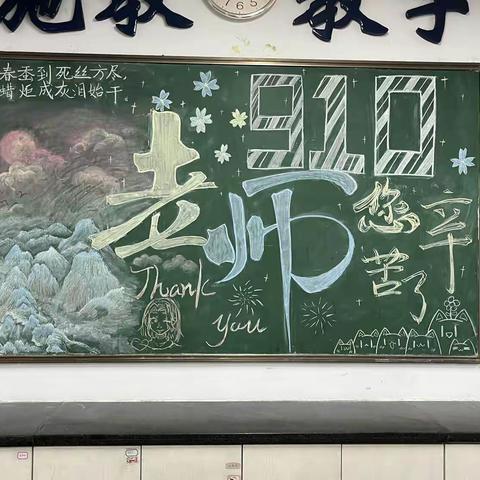 施教 教学
春蚕到死丝方尽,
蜡炬成灰泪始干.
910
老师
您辛
苦了
Thank
you